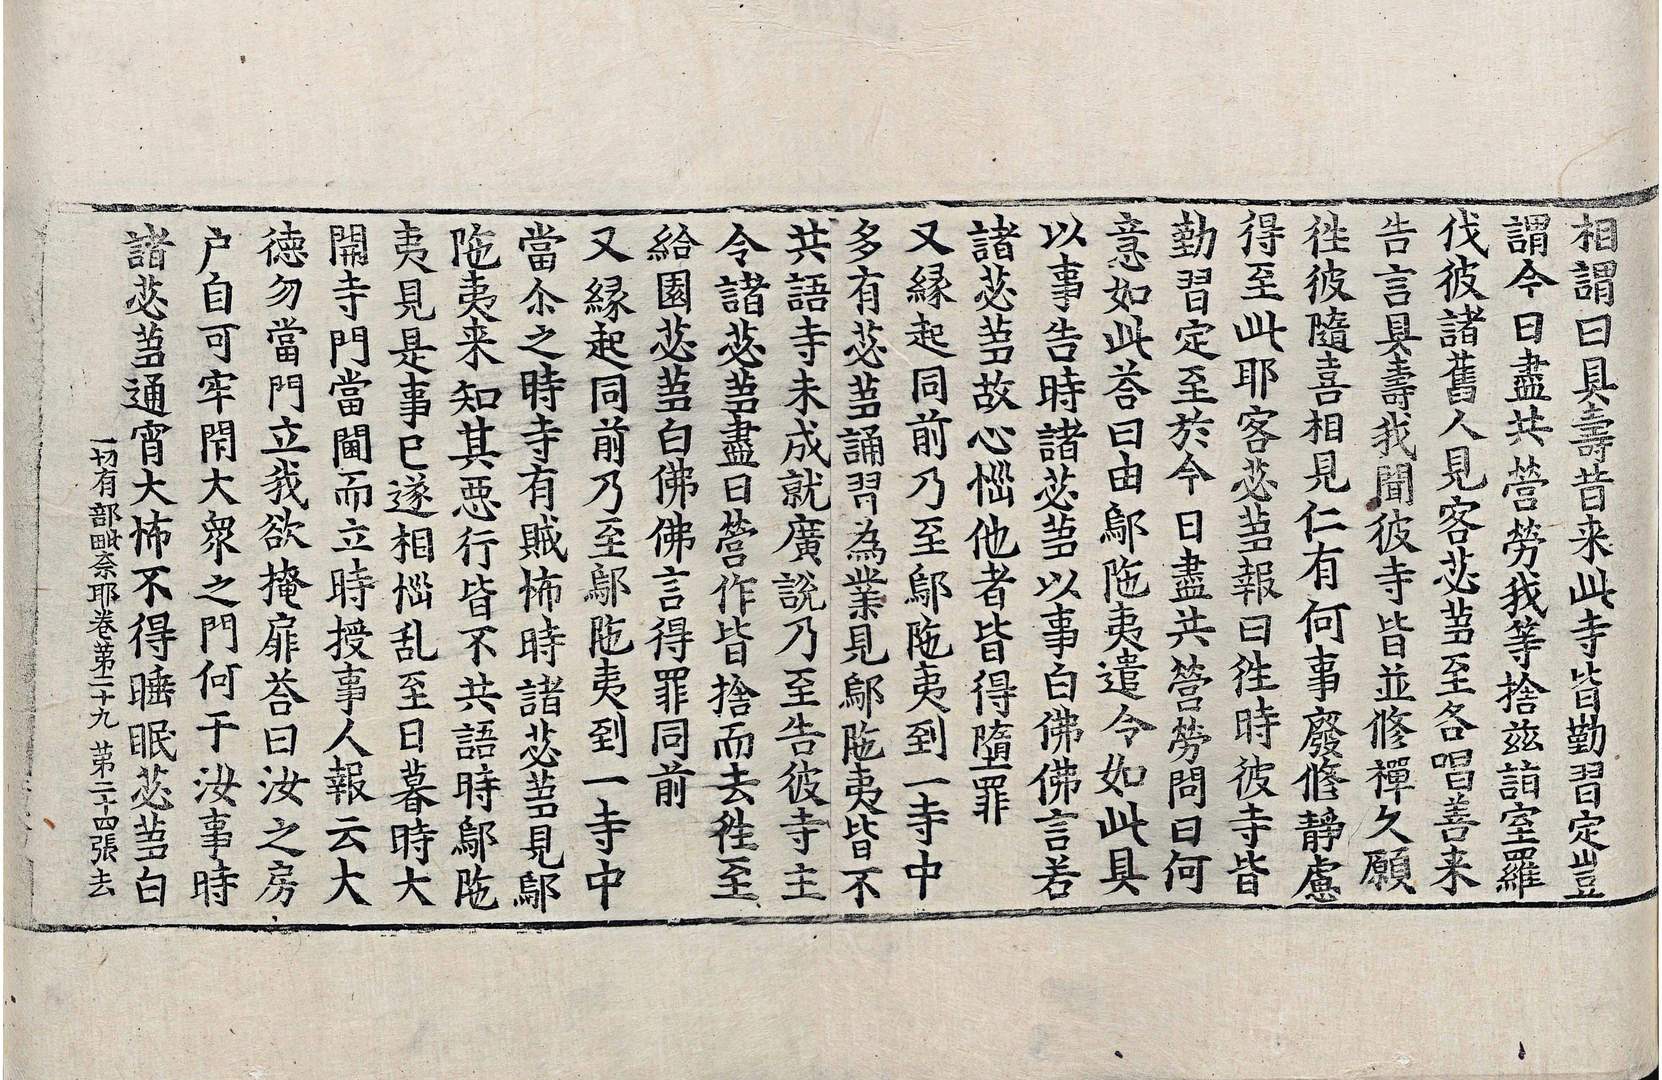 相謂曰具壽昔来此寺皆勤習定豈
謂今日盡共營勞我等捨兹詣室羅
伐彼諸舊人見客苾芻至各唱善来
告言具壽我聞彼寺皆並修禪久願
往彼隨喜相見仁有何事廢修靜慮
得至此耶客苾芻報曰往時彼寺皆
勤習定至於今日盡共營勞問曰何
意如此荅曰由鄔陁夷遣令如此具
以事告時諸苾芻以事白佛佛言若
諸苾芻故心惱他者皆得墮罪
又縁起同前乃至鄔陁夷到一寺中
多有苾芻誦習為業見鄔陁夷皆不
共語寺未成就廣説乃至告彼寺主
令諸苾芻盡日營作皆捨而去徃至
給園苾芻白佛佛言得罪同前
又縁起同前乃至鄔陁夷到一寺中
當尒之時寺有賊怖時諸苾芻見鄔
陁夷来知其惡行皆不共語時鄔陁
夷見是事已遂相惱乱至日暮時大
開寺門當閫而立時授事人報云大
德勿當門立我欲掩扉荅曰汝之房
户自可牢閇大衆之門何干汝事時
諸苾芻通宵大怖不得睡眠苾芻白
一切有部毗奈耶卷第二十九 第二十四張 去